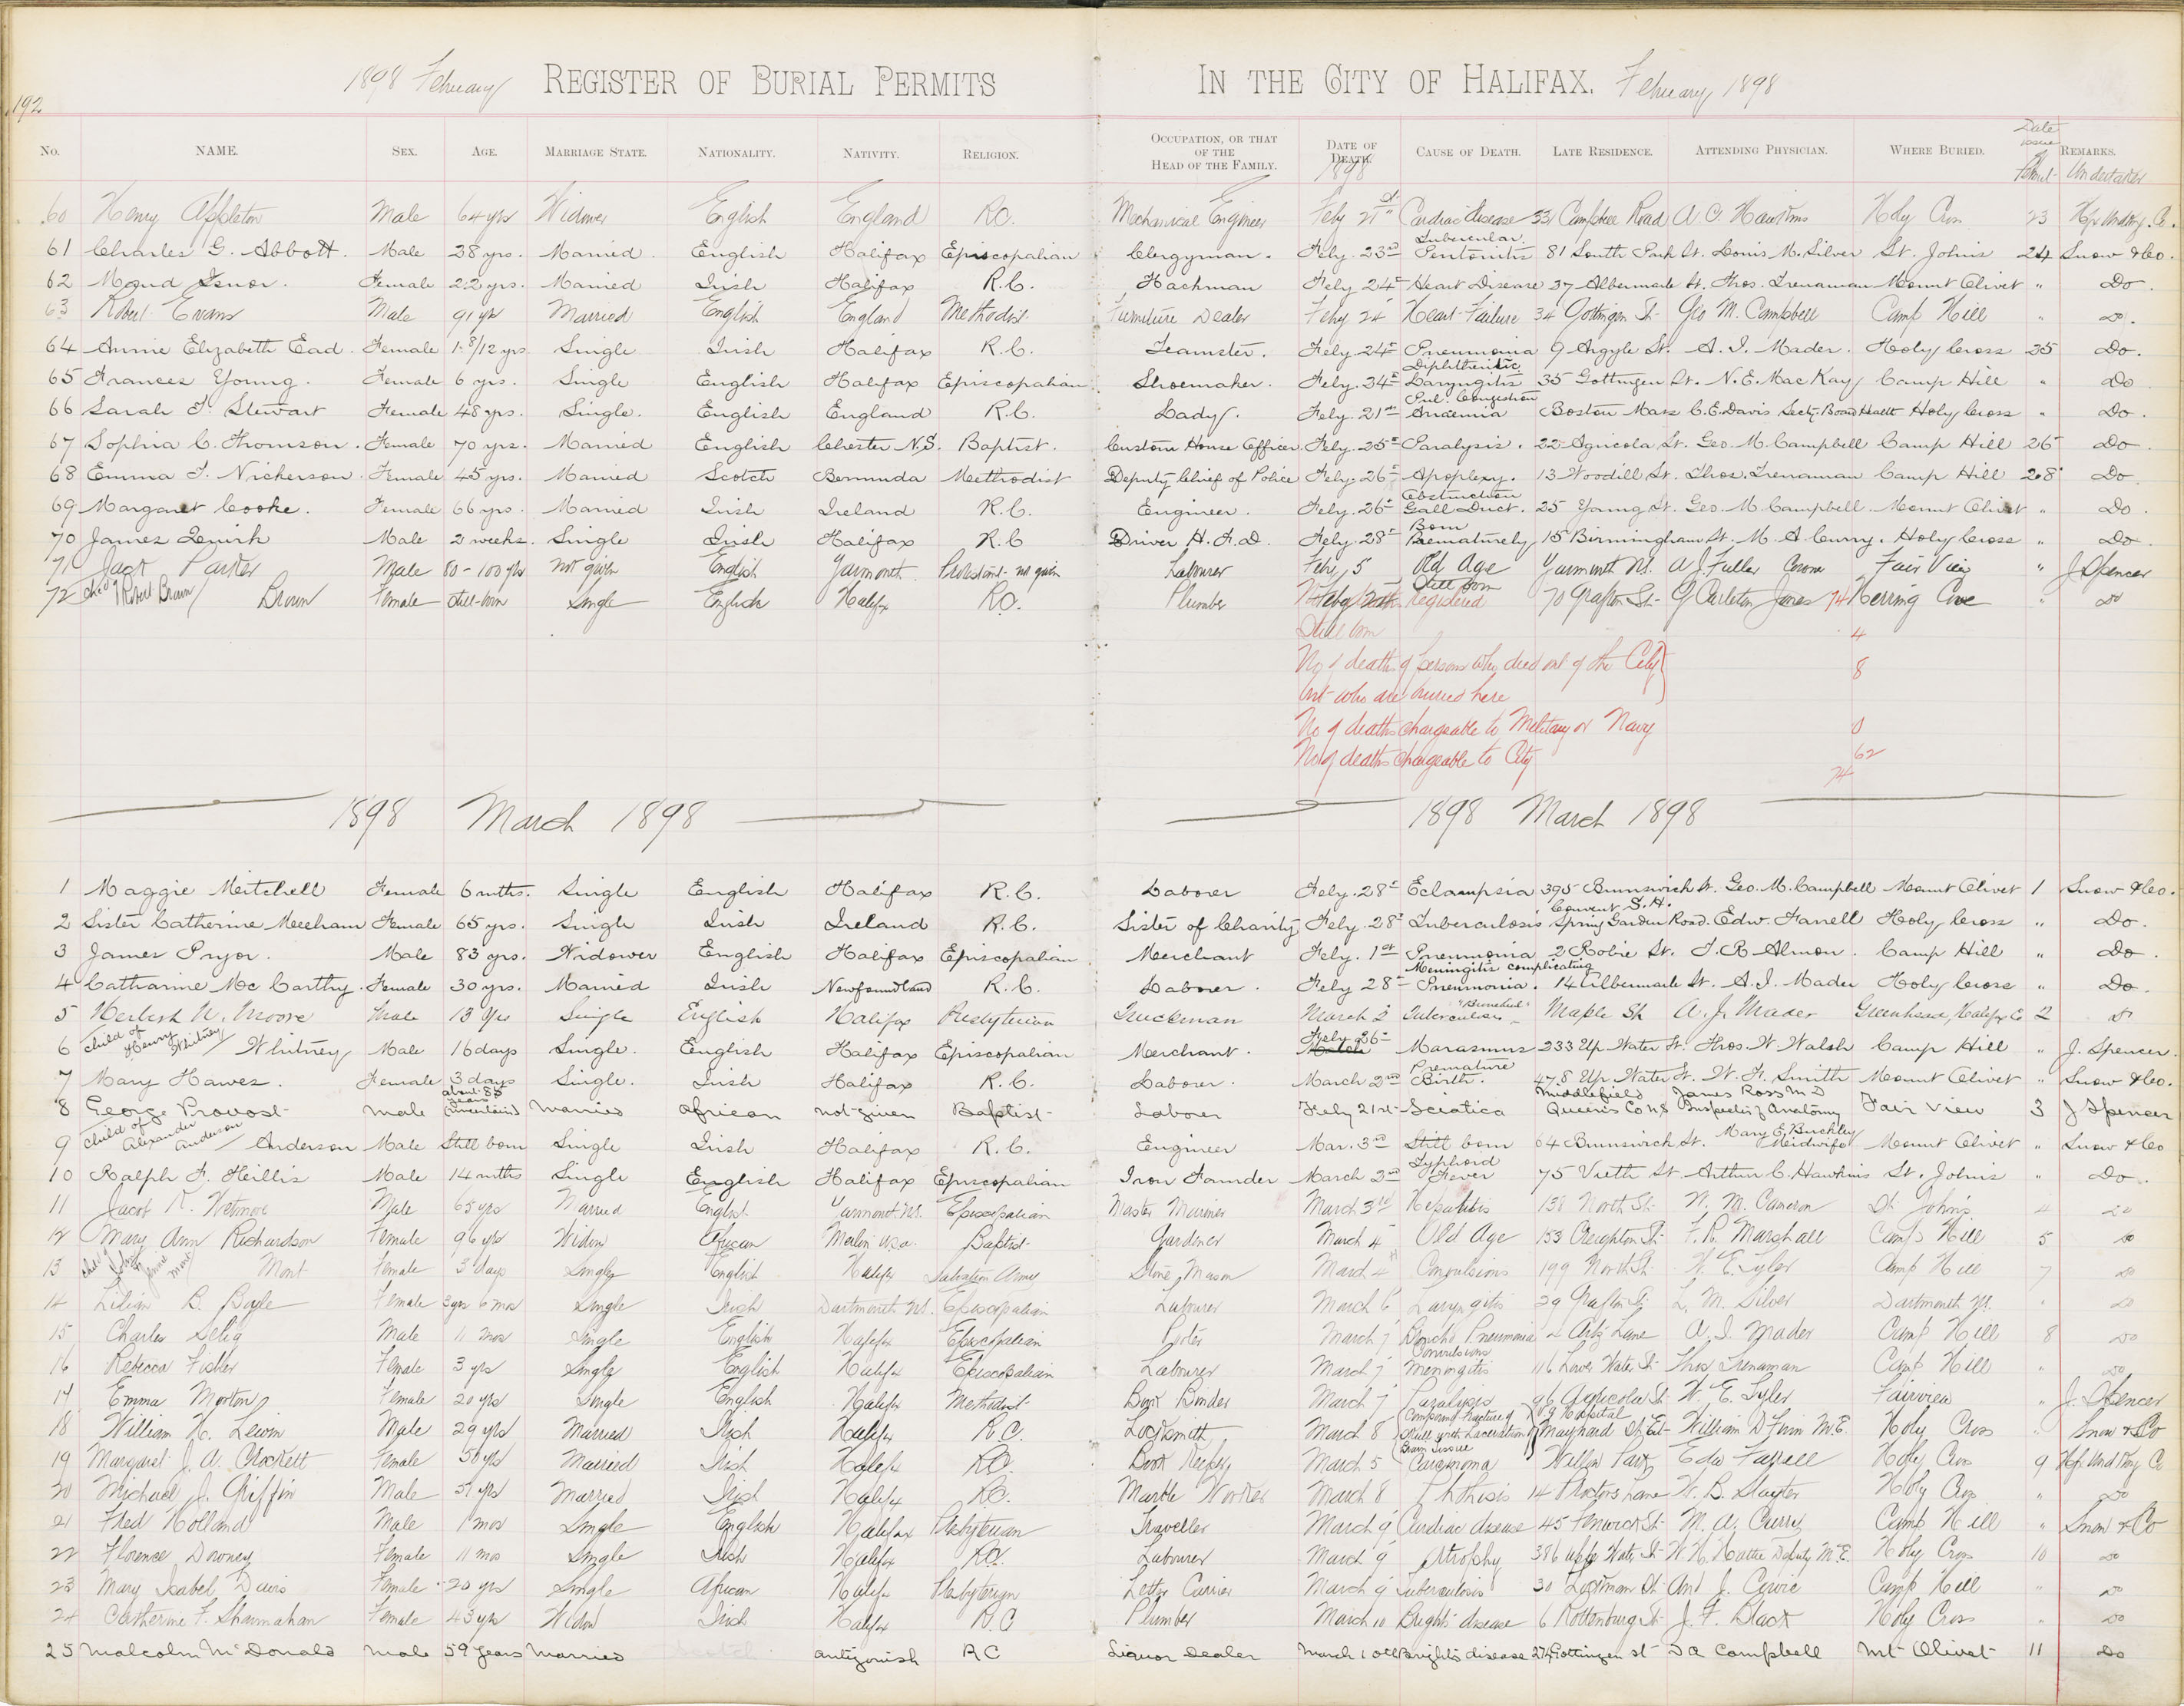 192
1898 February REGISTER OF BURIAL PERMITS IN THE CITY OF HALIFAX. February 1898
No. NAME. SEX. AGE. MARRIAGE STATE. NATIONALITY. NATIVITY. RELIGION. OCCUPATION, OR THAT OF THE HEAD OF THE FAMILY. DATE OF DEATH. 1898 CAUSE OF DEATH. LATE RESIDENCE. ATTENDING PHYSICIAN. WHERE BURIED. Date issue of Permit REMARKS. Undertaker
60 Henry Appleton Male 64 yrs Widower English England R.C. Mechanical Engineer Feby 21st Cardiac disease 331 Campbell Road A. C. Hawkins Holy Cross 23 Hfx Undtkg. Co.
61 Charles G. Abbott. Male 38 yrs. Married. English Halifax Episcopalian Clergyman. Feby. 23rd Tubercular Peritonitis 81 South Park St. Louis M. Silver St. Johns 24 Snow & Co.
62 Maud Isnor. Female 22 yrs. Married Irish Halifax R.C. Hackman Feby 24th Heart Disease 37 Albermarle St. Thos. Trenaman Mount Olivet " Do.
63 Robert Evans Male 91 yrs Married English England Methodist Furniture Dealer Feby 24 Heart Failure 34 Gottingen St. Geo M. Campbell Camp Hill " Do.
64 Annie Elizabeth Ead. Female 1 8/12 yrs. Single Irish Halifax R.C. Teamster. Feby. 24th Pneumonia 9 Argyle St. A. I. Mader. Holy Cross 25 Do.
65 Frances Young. Female 6 yrs. Single English Halifax Episcopalian. Shoemaker. Feby. 24th Diphtheritic Laryngitis 35 Gottingen St. N. E. MacKay Camp Hill " Do
66 Sarah F. Stewart Female 48 yrs. Single. English England R.C. Lady. Feby. 21st Pul. Congestion Anaemia Boston Mass C. E. Davis Secty. Board Health Holy Cross " Do.
67 Sophia C. Thomson. Female 70 yrs. Married English Chester N.S. Baptist. Custom House Officer Feby. 25th Paralysis. 22 Agricola St. Geo. M. Campbell Camp Hill 26 Do
68 Emma F. Nickerson. Female 45 yrs. Married Scotch Bermuda Methodist Deputy Chief of Police Feby. 26th Apoplexy. 13 Woodill St. Thos. Trenaman Camp Hill 28 Do.
69 Margaret Cooke. Female 66 yrs. Married Irish Ireland R.C. Engineer. Feby. 26th Obstruction Gall Duct. 25 Young St. Geo. M. Campbell. Mount Olivet " Do.
70 James Quirk Male 2 weeks. Single Irish Halifax R.C Driver H.F.D. Feby. 28th Born Prematurely 15 Birmingham St. M. A. Curry. Holy Cross " Do.
71 Jack Parker Male 80-100 yrs not given English Yarmouth Protestant no given Labourer Feby 5 Old Age Yarmouth NS. A. J. Fuller Coroner Fair View " J Spencer
72 child of Robert Brown Brown Female still-born Single English Halifax R.C. Plumber Still born 70 Grafton St. G Carleton Jones Herring Cove " do
registered 74
Still born 4
No of deaths of persons who died out of the City but who are buried here 8
No of deaths chargeable to Military or Navy 0
No of deaths chargeable to City 62
74
1898 March 1898 1898 March 1898
1 Maggie Mitchell Female 6 mths. Single English Halifax R.C. Laborer Feby. 28th Eclampsia 395 Brunswick St. Geo. M. Campbell Mount Olivet 1 Snow & Co.
2 Sister Catherine Meecham Female 65 yrs. Single Irish Ireland R.C. Sister of Charity Feby. 28th Tuberculosis Convent S.H. Spring Garden Road. Edw. Farrell Holy Cross " Do.
3 James Pryor. Male 83 yrs. Widower English Halifax Episcopalian Merchant Feby. 1st Pneumonia 2 Robie St. T. R. Almon. Camp Hill " Do.
4 Catharine McCarthy. Female 30 yrs. Married Irish Newfoundland R.C. Laborer. Feby 28th Meningitis complicating Pneumonia. 14 Albermarle St. A. I. Mader Holy Cross " Do.
5 Herbert N. Moore Male 13 Yrs Single English Halifax Presbyterian Truckman March 2 "Bronchial" Tuberculosis Maple St A. J. Mader Greenhead, Halifax Co 2 do
6 child of Henry Whitney Whitney Male 16 days Single. English Halifax Episcopalian Merchant. Feby 26th March Marasmus 233 Up. Water St. Thos. W. Walsh Camp Hill " J. Spencer.
7 Mary Hawes. Female 3 days Single. Irish Halifax R.C. Laborer. March 2nd Premature Birth. 478 Up. Water St. W. F. Smith Mount Olivet " Snow & Co.
8 George Provost Male about 85 years (uncertain) Married African not given Baptist Laborer Feby 21st Sciatica Middlefield Queens Co NS James Ross M D Inspector of Anatomy Fair View 3 J Spencer
9 child of Alexander Anderson Anderson Male Still born Single Irish Halifax R.C. Engineer Mar. 3rd Still born 64 Brunswick St. Mary E. Buckley Midwife Mount Olivet " Snow & Co
10 Ralph F. Hillis Male 14 mths Single English Halifax Episcopalian Iron Founder March 3rd Typhoid Fever 75 Veith St Arthur C. Hawkins St. Johns " Do.
11 Jacob K. Wetmore Male 65 yrs Married English Yarmouth NS. Episcopalian Master Mariner March 3rd Hepatitis 138 North St. W. M. Cameron St. John's 4 do
12 Mary Ann Richardson Female 96 yrs Widow African Baptist Gardener March 4 Old Age 153 Creighton St. F. R. Marshall Camp Hill 5 do
13 child of Mont Female 3 days Single English Halifax Salvation Army Stone Mason March 4th Convulsions 199 North St. W. E. Tyler Camp Hill 7 do
14 Lilian B. Boyle Female 3 yrs 6 mos Single Irish Dartmouth NS. Episcopalian Labourer March 6 Laryngitis 29 Grafton St. L. M. Silver Dartmouth NS. " do
15 Charles Selig Male 11 mos Single English Halifax Episcopalian Porter March 7 Broncho Pneumonia Convulsions 2 Artz Lane A. I. Mader Camp Hill 8 do
16 Rebecca Fisher Female 3 yrs Single English Halifax Episcopalian Labourer March 7 Meningitis 116 Lower Water St. Thos Trenaman Camp Hill " do
17 Emma Morton Female 20 yrs Single English Halifax Methodist Book Binder March 7 Paralysis 96 Agricola St. W. E. Tyler Fairview " J. Spencer
18 William H. Lewin Male 29 yrs Married Irish Halifax R.C. Locksmith March 8 Compound fracture of Skull with laceration of Brain Tissue V.G Hospital Maynard St. William D Finn M.E. Holy Cross " Snow & Co
19 Margaret J. A. Crockett Female 50 yrs Married Irish Halifax R.C. Book Keeper March 5 Carcinoma Willow Park Edw Farrell Holy Cross 9 Hfx Undtkg Co
20 Michael J. Griffin Male 51 yrs Married Irish Halifax R.C. Marble Worker March 8 Phthisis 14 Proctors Lane W. B. Slayter Holy Cross " do
21 Fred Holland Male 1 mos Single English Halifax Presbyterian Traveller March 9 Cardiac disease 45 Fenwick St. M. A. Curry Camp Hill " Snow & Co
22 Florence Downey Female 11 mos Single Irish Halifax R.C. Labourer March 9 Atrophy 386 Upper Water St. W. H. Hattie Deputy M.E. Holy Cross 10 do
23 Mary Isabel Davis Female 20 yrs Single African Halifax Presbyterian Letter Carrier March 9 Tuberculosis 30 Lockman St. And J. Cowie Camp Hill " do
24 Catherine F. Shannahan Female 43 yrs Widow Irish Halifax R.C Plumber March 10 Brights disease 6 Rottenburg St. J. F. Black Holy Cross " do
25 Malcolm McDonald Male 59 years Married Scotch Antigonish R C Liquor Dealer March 10th Brights disease 274 Gottingen St D A Campbell Mt Olivet 11 Do